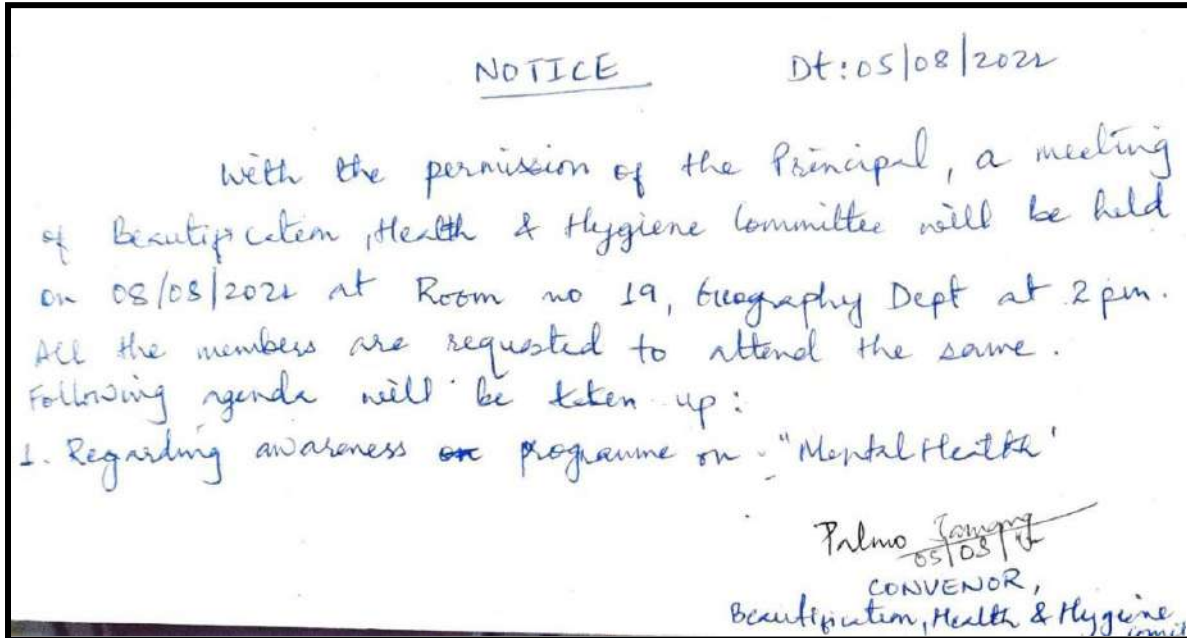 NOTICE Dt: 05/08/2022
With the permission of the Principal, a meeting
of Beautification, Health & Hygiene Committee will be held
on 08/08/2022 at Room no 19, Geography Dept at 2 pm.
All the members are requested to attend the same.
Following agenda will be taken up:
1. Regarding awareness programme on "Mental Health'
Palmo Tamang
05/08/
CONVENOR,
Beautification, Health & Hygiene